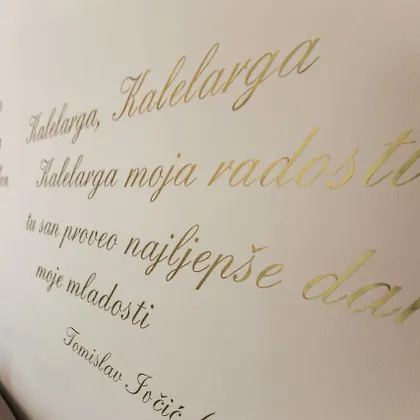 Kalelarga, Kalelarga
Kalelarga moja radosti
tu san proveo najljepše
moje mladosti
Tomislav